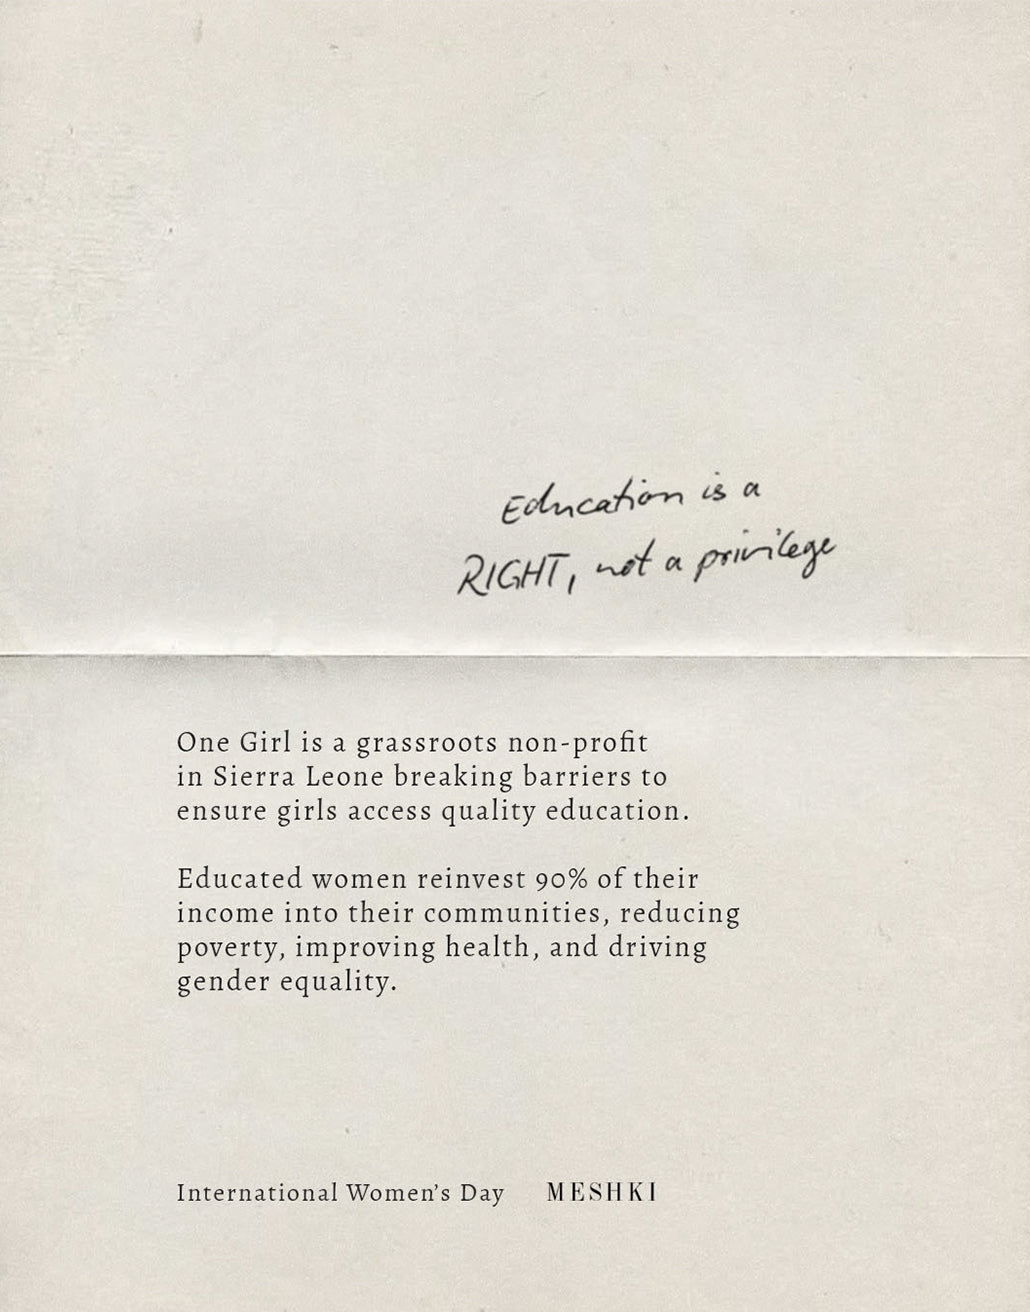 Education is a
RIGHT, not a privilege
One Girl is a grassroots non-profit
in Sierra Leone breaking barriers to
ensure girls access quality education.
Educated women reinvest 90% of their
income into their communities, reducing
poverty, improving health, and driving
gender equality.
International Women’s Day MESHKI